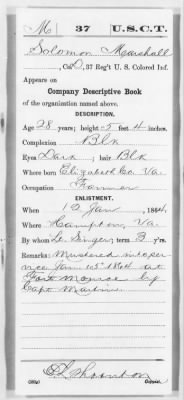 M 37 U.S.C.T.
Solomon Marshall
, Co. D, 37 Reg't U. S. Colored Inf.
Appears on
Company Descriptive Book
of the organization named above.
DESCRIPTION.
Age 28 years; height 5 feet 4 inches.
Complexion Blk
Eyes Dark ; hair Blk
Where born Elizabeth Co. Va.
Occupation Farmer
ENLISTMENT.
When 12 Jan , 1864.
Where Hampton, Va.
By whom Lt. Singer; term 3 y'rs.
Remarks: Mustered into ser
vice Jan. 15" 1864 at
Fort Monroe by
Capt Martin
Thornton
Copyist.